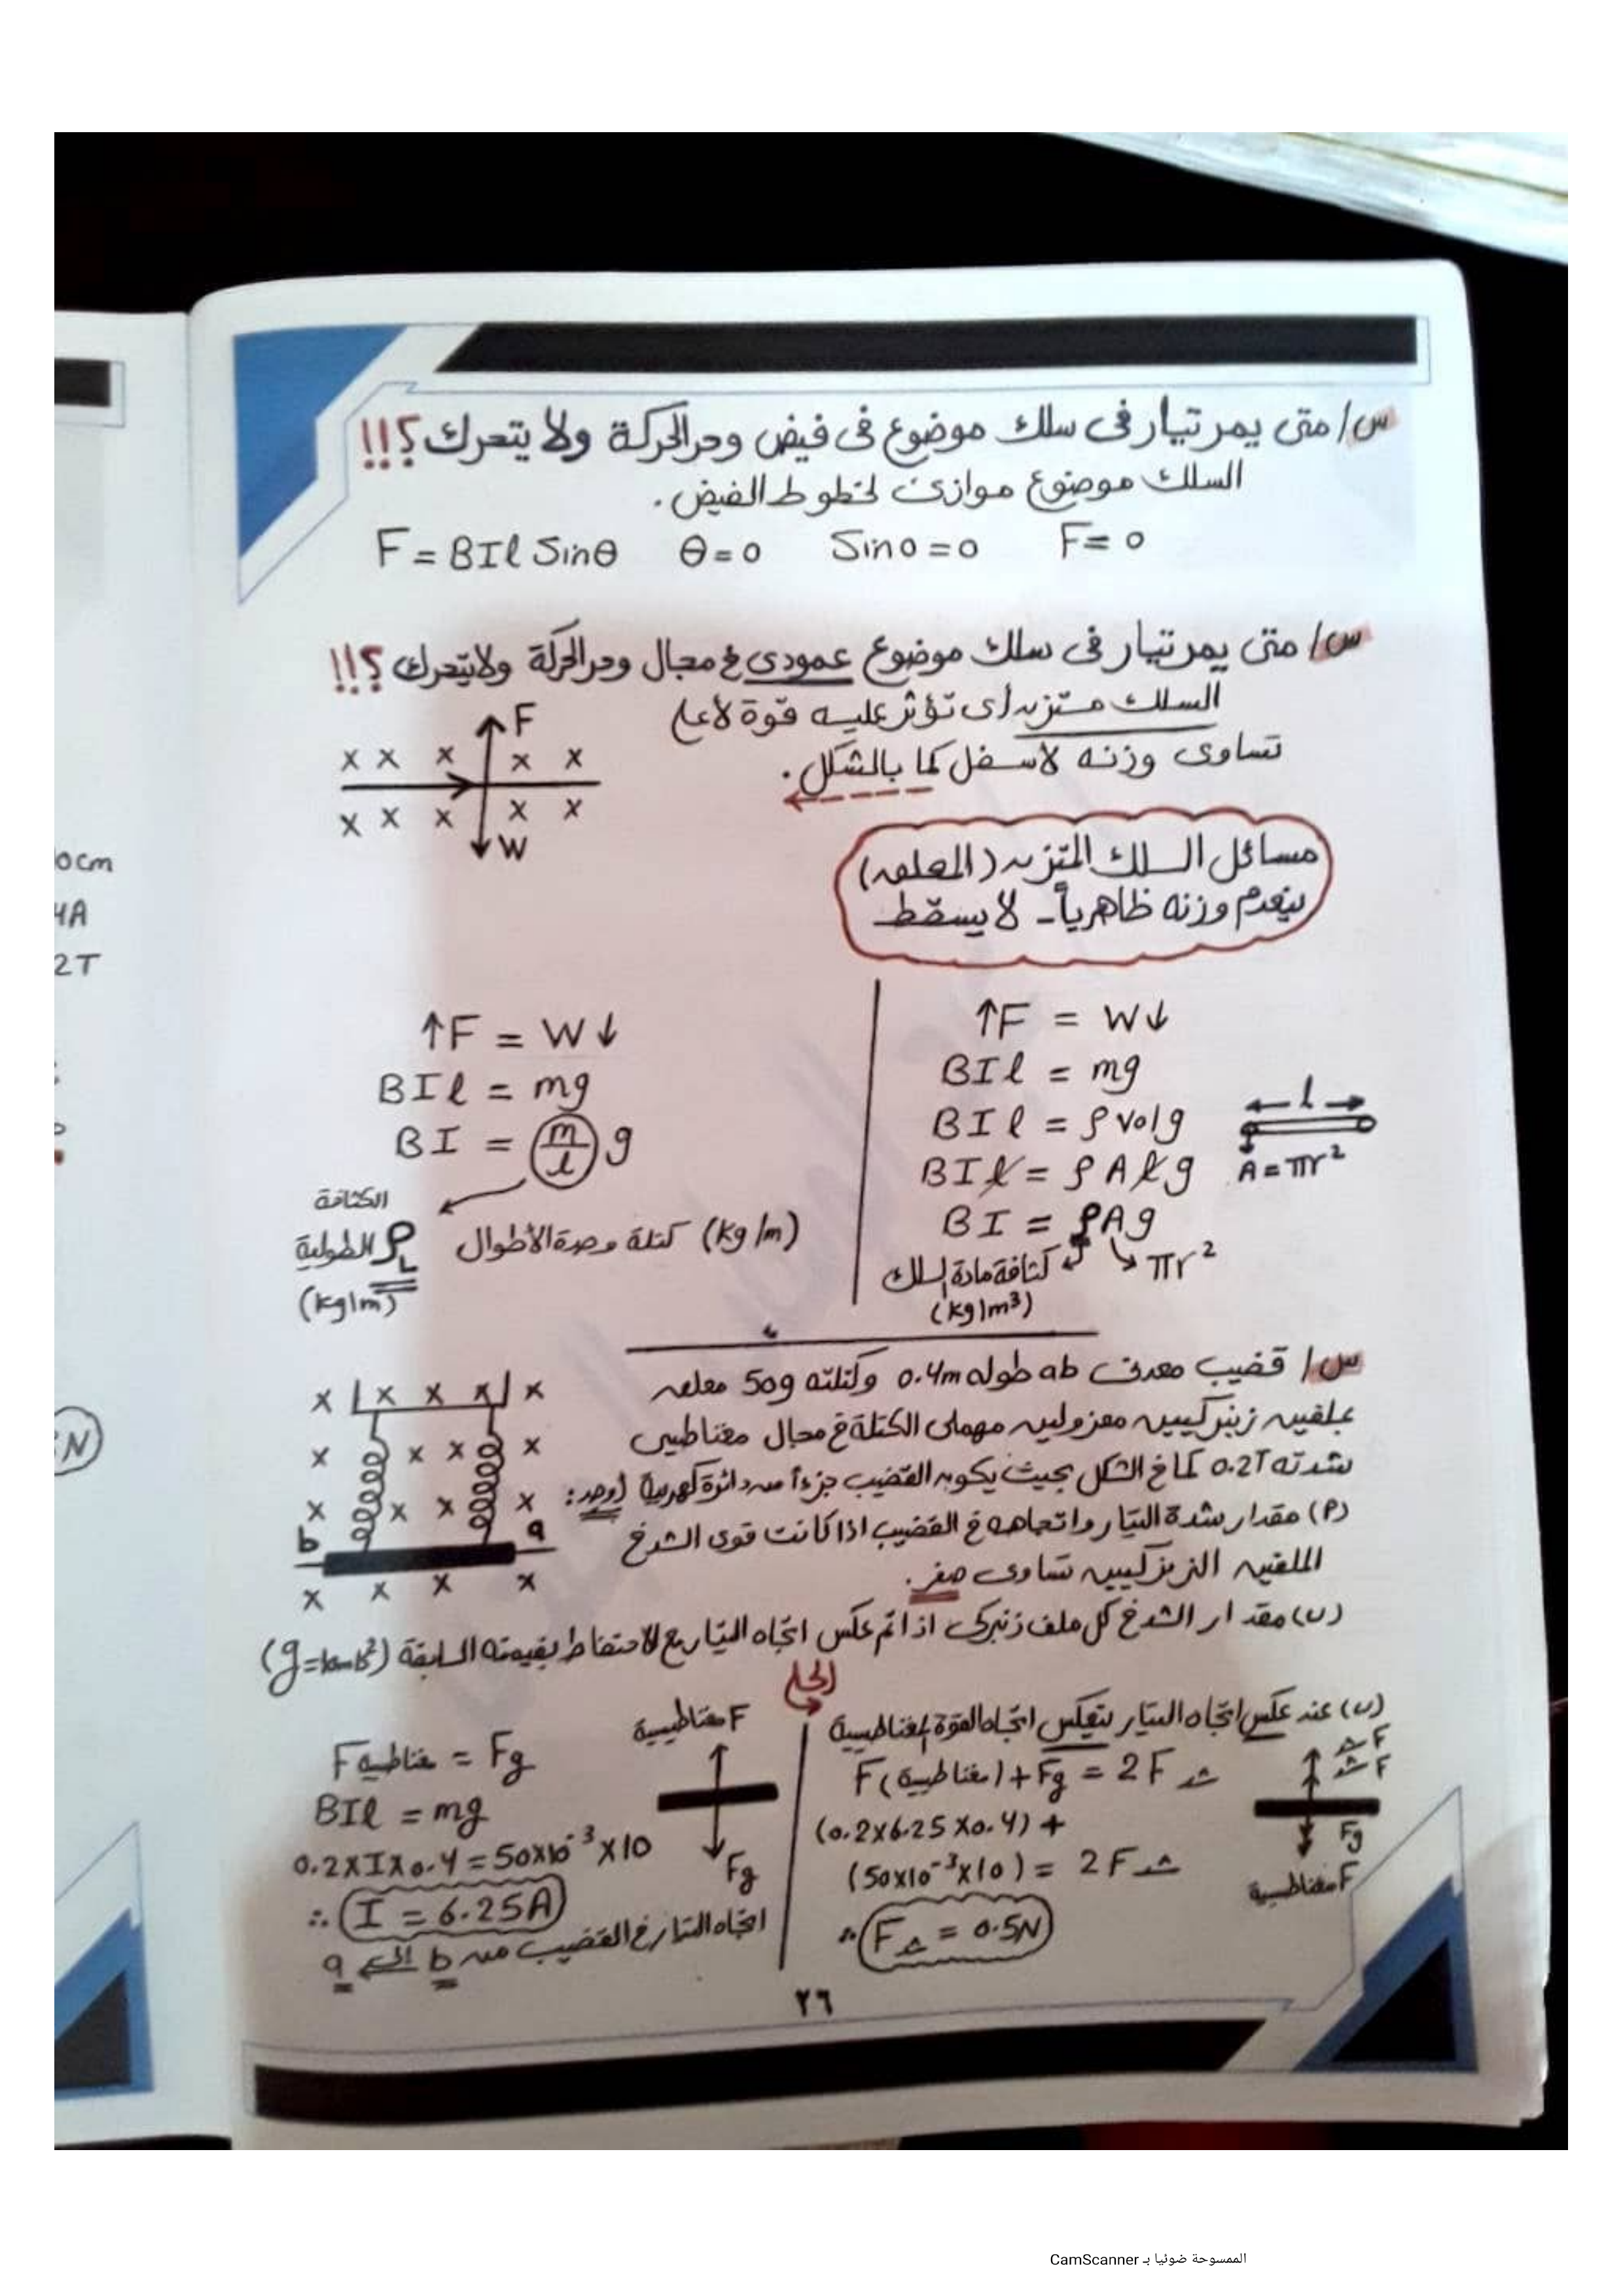 س/ متى يمر تيار فى سلك موضوع فى فيض وحر الحركة ولا يتحرك ؟!!
السلك موضوع موازى لخطوط الفيض .
F = BIl Sinθ θ = 0 Sin0 = 0 F = 0
س/ متى يمر تيار فى سلك موضوع عمودى فى مجال وحر الحركة ولا يتحرك ؟!!
السلك متزن أى تؤثر عليه قوة لأعلى
تساوى وزنه لأسفل كما بالشكل .
F
x x x x x
x x x x x
W
مسائل السلك المتزن (المعلق)
ينعدم وزنه ظاهرياً - لا يسقط
↑F = W↓
BIl = mg
BIl = ρ vol g
BIl = ρ A l g
BI = ρAg
πr²
كثافة مادة السلك
(kg/m³)
l
A = πr²
↑F = W↓
BIl = mg
BI = (m/l) g
كتلة وحدة الأطوال (kg/m)
الكثافة
الطولية ρL
(kg/m)
س/ قضيب معدنى ab طوله 0.4m وكتلته 50g معلق
بملفين زنبركيين معزولين مهملى الكتلة فى مجال مغناطيسى
شدته 0.2T كما فى الشكل بحيث يكون القضيب جزءاً من دائرة كهربية أوجد :
(أ) مقدار شدة التيار واتجاهه فى القضيب اذا كانت قوى الشد فى
الملفين الزنبركيين تساوى صفر .
(ب) مقدار الشد فى كل ملف زنبركى اذا تم عكس اتجاه التيار مع الاحتفاظ بقيمته السابقة (g=10m/s²)
x x x x x
x x x x
x x x x
b a
x x x x
الحل
F مغناطيسية = Fg
BIl = mg
0.2 x I x 0.4 = 50x10⁻³ x 10
∴ I = 6.25A
اتجاه التيار فى القضيب من b الى a
F مغناطيسية
Fg
(ب) عند عكس اتجاه التيار ينعكس اتجاه القوة المغناطيسية
F(مغناطيسية) + Fg = 2F شد
(0.2x6.25x0.4) +
(50x10⁻³x10) = 2F شد
∴ F شد = 0.5N
F شد
F شد
Fg
F مغناطيسية
٢٦
0cm
4A
2T
N
الممسوحة ضوئيا بـ CamScanner